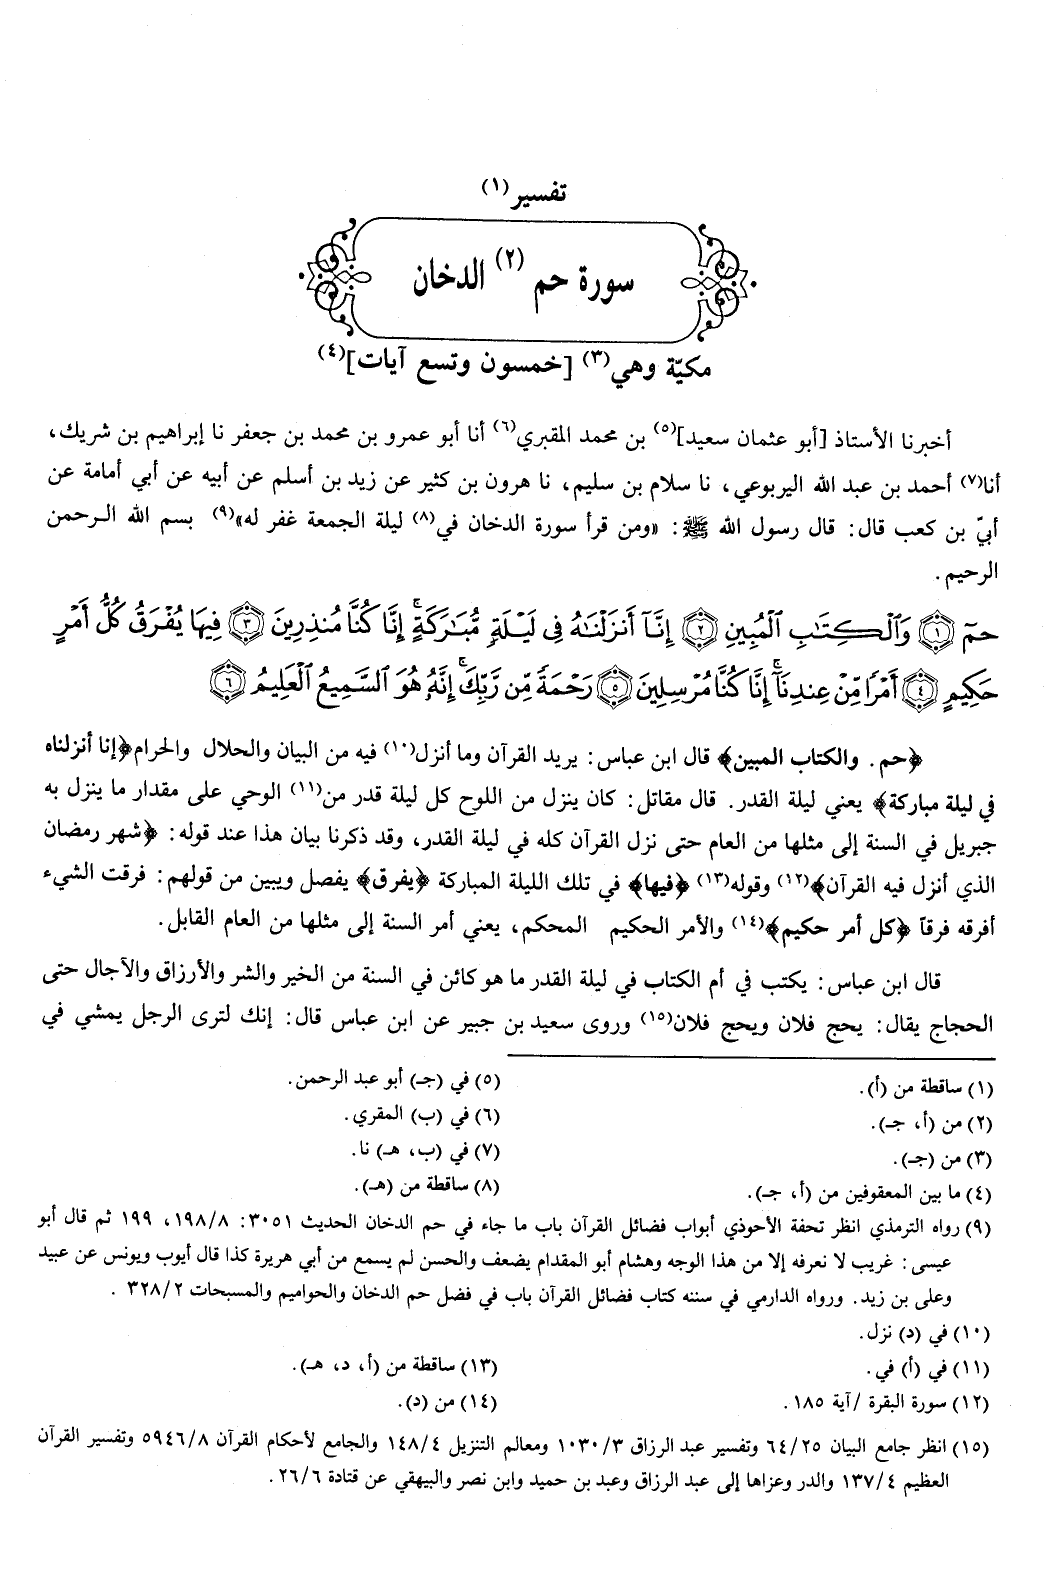 تفسير(١)
سورة حم (٢) الدخان
مكيّة وهي(٣) [خمسون وتسع آيات](٤)
أخبرنا الأستاذ [أبو عثمان سعيد](٥) بن محمد المقبري(٦) أنا أبو عمرو بن محمد بن جعفر نا إبراهيم بن شريك،
أنا(٧) أحمد بن عبد الله اليربوعي، نا سلام بن سليم، نا هرون بن كثير عن زيد بن أسلم عن أبيه عن أبي أمامة عن
أبيّ بن كعب قال: قال رسول الله ﷺ: «ومن قرأ سورة الدخان في(٨) ليلة الجمعة غفر له»(٩) بسم الله الرحمن
الرحيم.
حمٓ ﴿١﴾ وَٱلْكِتَٰبِ ٱلْمُبِينِ ﴿٢﴾ إِنَّآ أَنزَلْنَٰهُ فِى لَيْلَةٍ مُّبَٰرَكَةٍ ۚ إِنَّا كُنَّا مُنذِرِينَ ﴿٣﴾ فِيهَا يُفْرَقُ كُلُّ أَمْرٍ
حَكِيمٍ ﴿٤﴾ أَمْرًا مِّنْ عِندِنَآ ۚ إِنَّا كُنَّا مُرْسِلِينَ ﴿٥﴾ رَحْمَةً مِّن رَّبِّكَ ۚ إِنَّهُۥ هُوَ ٱلسَّمِيعُ ٱلْعَلِيمُ ﴿٦﴾
﴿حم. والكتاب المبين﴾ قال ابن عباس: يريد القرآن وما أنزل(١٠) فيه من البيان والحلال والحرام ﴿إنا أنزلناه
في ليلة مباركة﴾ يعني ليلة القدر. قال مقاتل: كان ينزل من اللوح كل ليلة قدر من(١١) الوحي على مقدار ما ينزل به
جبريل في السنة إلى مثلها من العام حتى نزل القرآن كله في ليلة القدر، وقد ذكرنا بيان هذا عند قوله: ﴿شهر رمضان
الذي أنزل فيه القرآن﴾(١٢) وقوله(١٣) ﴿فيها﴾ في تلك الليلة المباركة ﴿يفرق﴾ يفصل ويبين من قولهم: فرقت الشيء
أفرقه فرقاً ﴿كل أمر حكيم﴾(١٤) والأمر الحكيم المحكم، يعني أمر السنة إلى مثلها من العام القابل.
قال ابن عباس: يكتب في أم الكتاب في ليلة القدر ما هو كائن في السنة من الخير والشر والأرزاق والآجال حتى
الحجاج يقال: يحج فلان ويحج فلان(١٥) وروى سعيد بن جبير عن ابن عباس قال: إنك لترى الرجل يمشي في
(١) ساقطة من (أ).
(٢) من (أ، جـ).
(٣) من (جـ).
(٤) ما بين المعقوفين من (أ، جـ).
(٥) في (جـ) أبو عبد الرحمن.
(٦) في (ب) المقري.
(٧) في (ب، هـ) نا.
(٨) ساقطة من (هـ).
(٩) رواه الترمذي انظر تحفة الأحوذي أبواب فضائل القرآن باب ما جاء في حم الدخان الحديث ٣٠٥١: ١٩٨/٨، ١٩٩ ثم قال أبو
عيسى: غريب لا نعرفه إلا من هذا الوجه وهشام أبو المقدام يضعف والحسن لم يسمع من أبي هريرة كذا قال أيوب ويونس عن عبيد
وعلى بن زيد. ورواه الدارمي في سننه كتاب فضائل القرآن باب في فضل حم الدخان والحواميم والمسبحات ٣٢٨/٢ .
(١٠) في (د) نزل.
(١١) في (أ) في.
(١٢) سورة البقرة /آية ١٨٥.
(١٣) ساقطة من (أ، د، هـ).
(١٤) من (د).
(١٥) انظر جامع البيان ٦٤/٢٥ وتفسير عبد الرزاق ١٠٣٠/٣ ومعالم التنزيل ١٤٨/٤ والجامع لأحكام القرآن ٥٩٤٦/٨ وتفسير القرآن
العظيم ١٣٧/٤ والدر وعزاها إلى عبد الرزاق وعبد بن حميد وابن نصر والبيهقي عن قتادة ٢٦/٦.